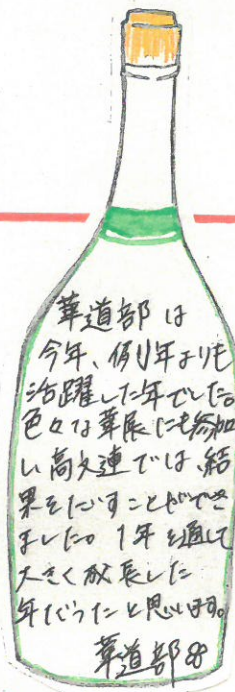 華道部は
今年、例年よりも
活躍した年でした。
色々な華展にも参加
し高文連では、結
果をだすことができ
ました。1年を通して
大きく成長した
年だったと思います。
華道部